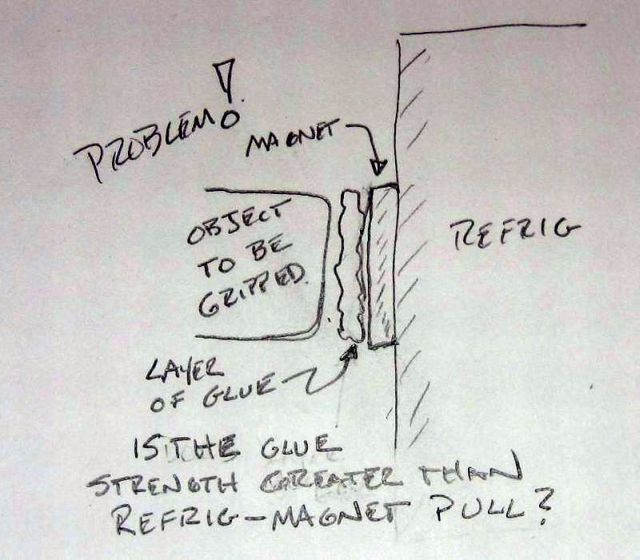 PROBLEM!
MAGNET
OBJECT
TO BE
GRIPPED.
REFRIG
LAYER
OF GLUE
IS THE GLUE
STRENGTH GREATER THAN
REFRIG-MAGNET PULL?